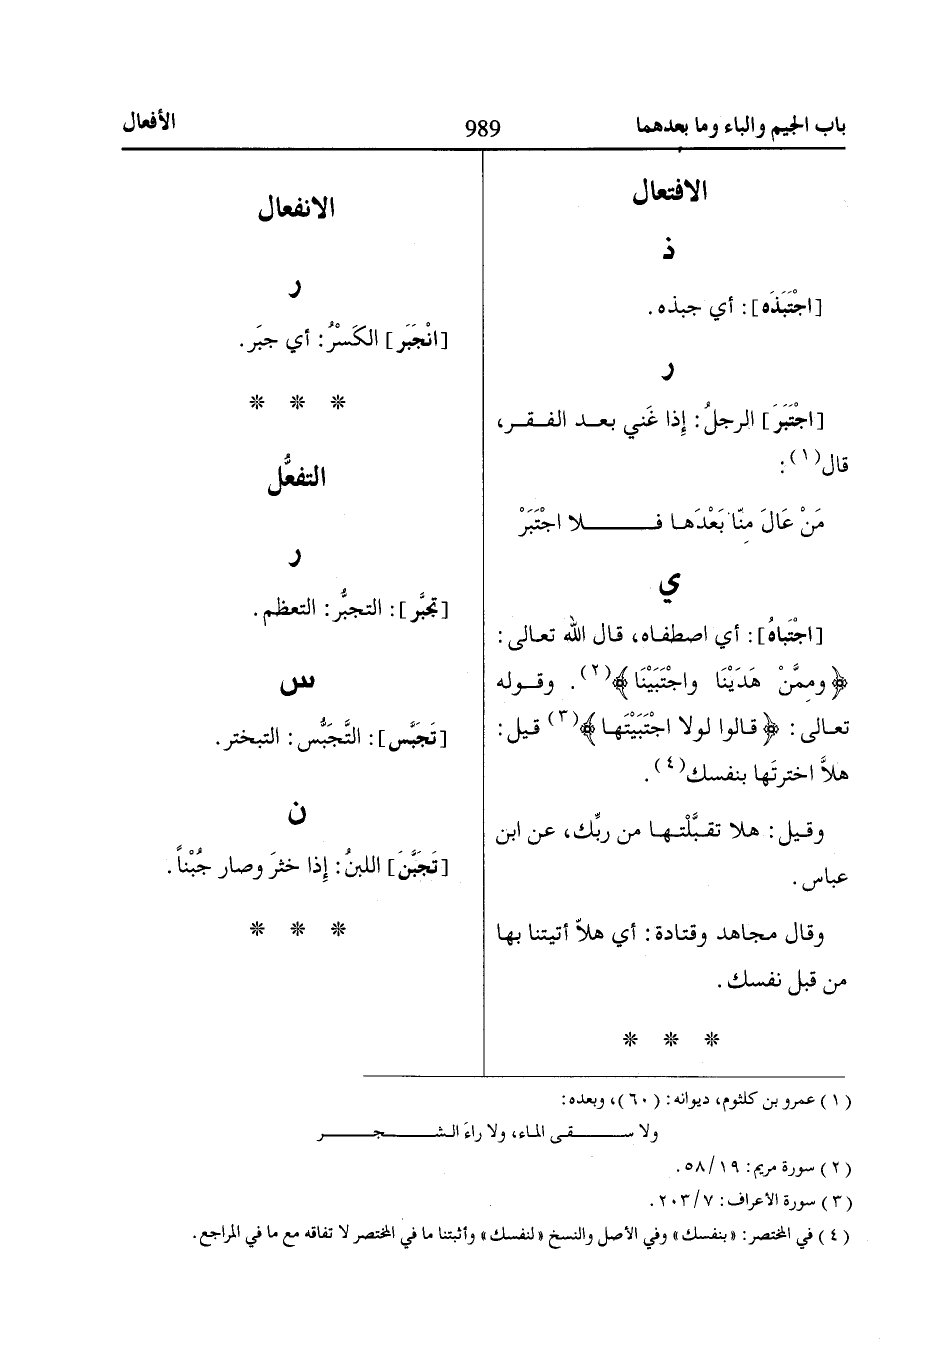 باب الجيم والباء وما بعدهما
989
الأفعال
الافتعال
ذ
[اجْتَبَذَه]: أي جبذه.
ر
[اجْتَبَرَ] الرجلُ: إذا غَني بعد الفقر،
قال(١):
مَنْ عَالَ مِنّا بَعْدَها فلا اجْتَبَرْ
ي
[اجْتَباهُ]: أي اصطفاه، قال الله تعالى:
﴿وممَّنْ هَدَيْنَا واجْتَبَيْنَا﴾(٢). وقوله
تعالى: ﴿قالوا لولا اجْتَبَيْتَها﴾(٣) قيل:
هلاَّ اخترتَها بنفسك(٤).
وقيل: هلا تقبَّلْتها من ربِّك، عن ابن
عباس.
وقال مجاهد وقتادة: أي هلاّ أتيتنا بها
من قبل نفسك.
* * *
الانفعال
ر
[انْجَبَر] الكَسْرُ: أي جبَر.
* * *
التفعُّل
ر
[تجبَّر]: التجبُّر: التعظم.
س
[تَجَبَّس]: التَّجَبُّس: التبختر.
ن
[تَجَبَّنَ] اللبنُ: إذا خثرَ وصار جُبْناً.
* * *
(١) عمرو بن كلثوم، ديوانه: (٦٠)، وبعده:
ولا سقى الماء، ولا راءَ الشجر
(٢) سورة مريم: ٥٨/١٩.
(٣) سورة الأعراف: ٢٠٣/٧.
(٤) في المختصر: «بنفسك» وفي الأصل والنسخ «لنفسك» وأثبتنا ما في المختصر لا تفاقه مع ما في المراجع.